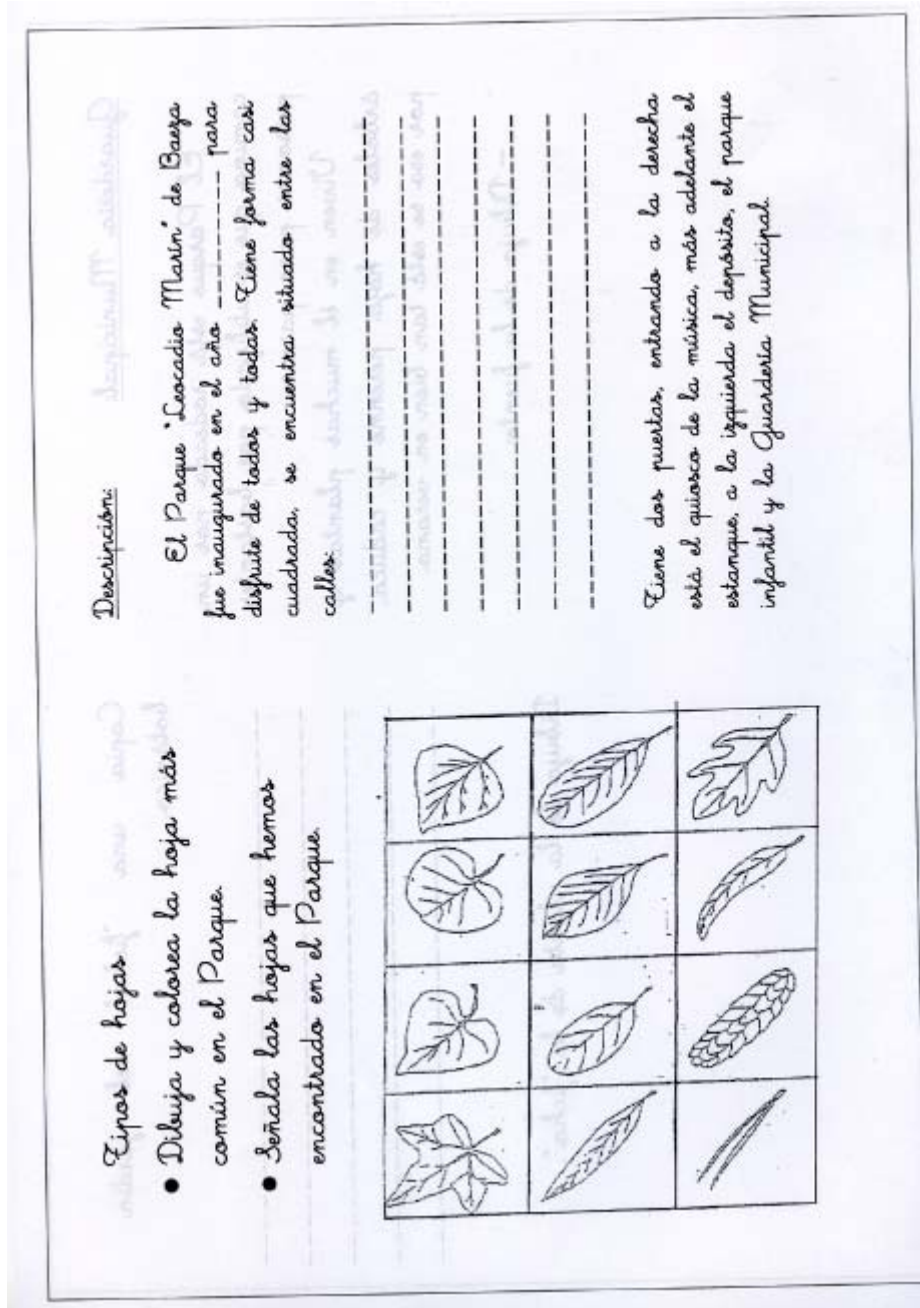 Tipos de hojas:
● Dibuja y colorea la hoja más
común en el Parque.
● Señala las hojas que hemos
encontrado en el Parque.
Descripción:
El Parque "Leocadio Marín" de Baeza
fue inaugurado en el año ---------- para
disfrute de todos y todas. Tiene forma casi
cuadrada, se encuentra situado entre las
calles:
Tiene dos puertas, entrando a la derecha
está el quiosco de la música, más adelante el
estanque, a la izquierda el depósito, el parque
infantil y la Guardería Municipal.